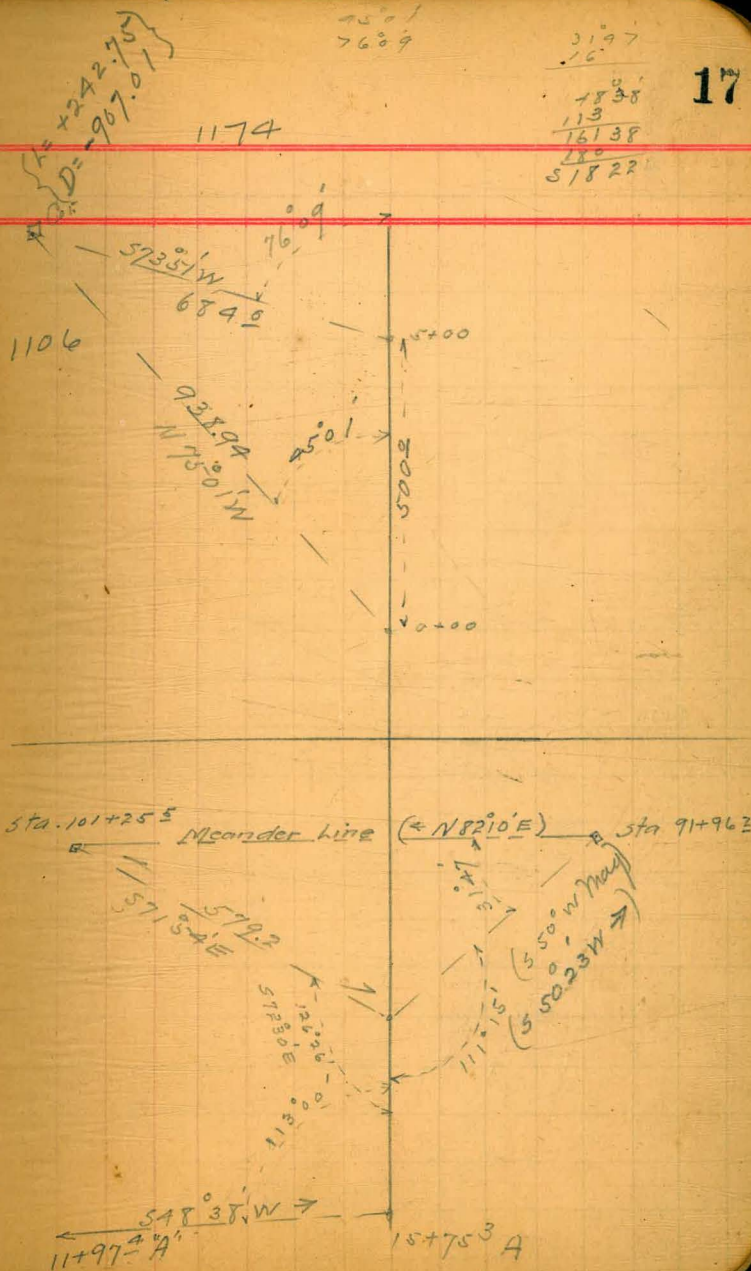 45°01'
76°09'
31°47'
16
48°38'
113
161 38
180
S 18 22
17
{L = +242.75}
{D = -907.01}
1174
76°09'
S73°51'W
684.0
5+00
1106
938.94
N 75°01'W
45°01'
500.2
0+00
Sta. 101+25 5
Meander Line
(← N82°10'E)
Sta 91+96 3
31°47'
579.2
S71°54'E
(S 50° W Mag)
(S 50°23'W →)
111°15'
126°26'
S72°30'E
113°00'
S48°38'W →
11+97 4 "A"
15+75 3 A